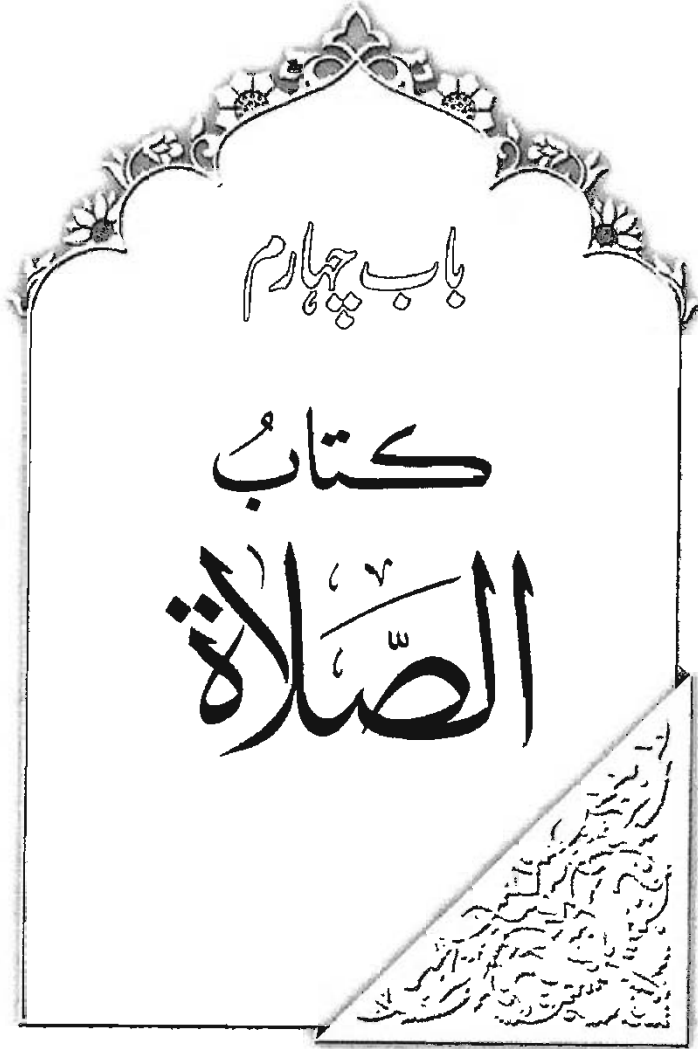 باب چہارم
کتابُ
الصَّلاة